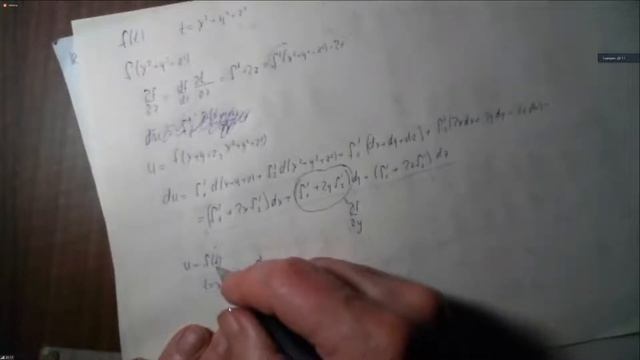 f(t) t = x² + y² + z²
f(x² + y² + z²)
∂f/∂z = df/dt ∂t/∂z = f' · 2z = f'(x² + y² + z²) · 2z
u = f(x+y+z, x²+y²+z²)
du = f₁' d(x+y+z) + f₂' d(x²+y²+z²) = f₁' (dx+dy+dz) + f₂' (2xdx + 2ydy + 2zdz) =
= (f₁' + 2xf₂') dx + (f₁' + 2yf₂') dy + (f₁' + 2zf₂') dz
∂f/∂y
u = f(t)